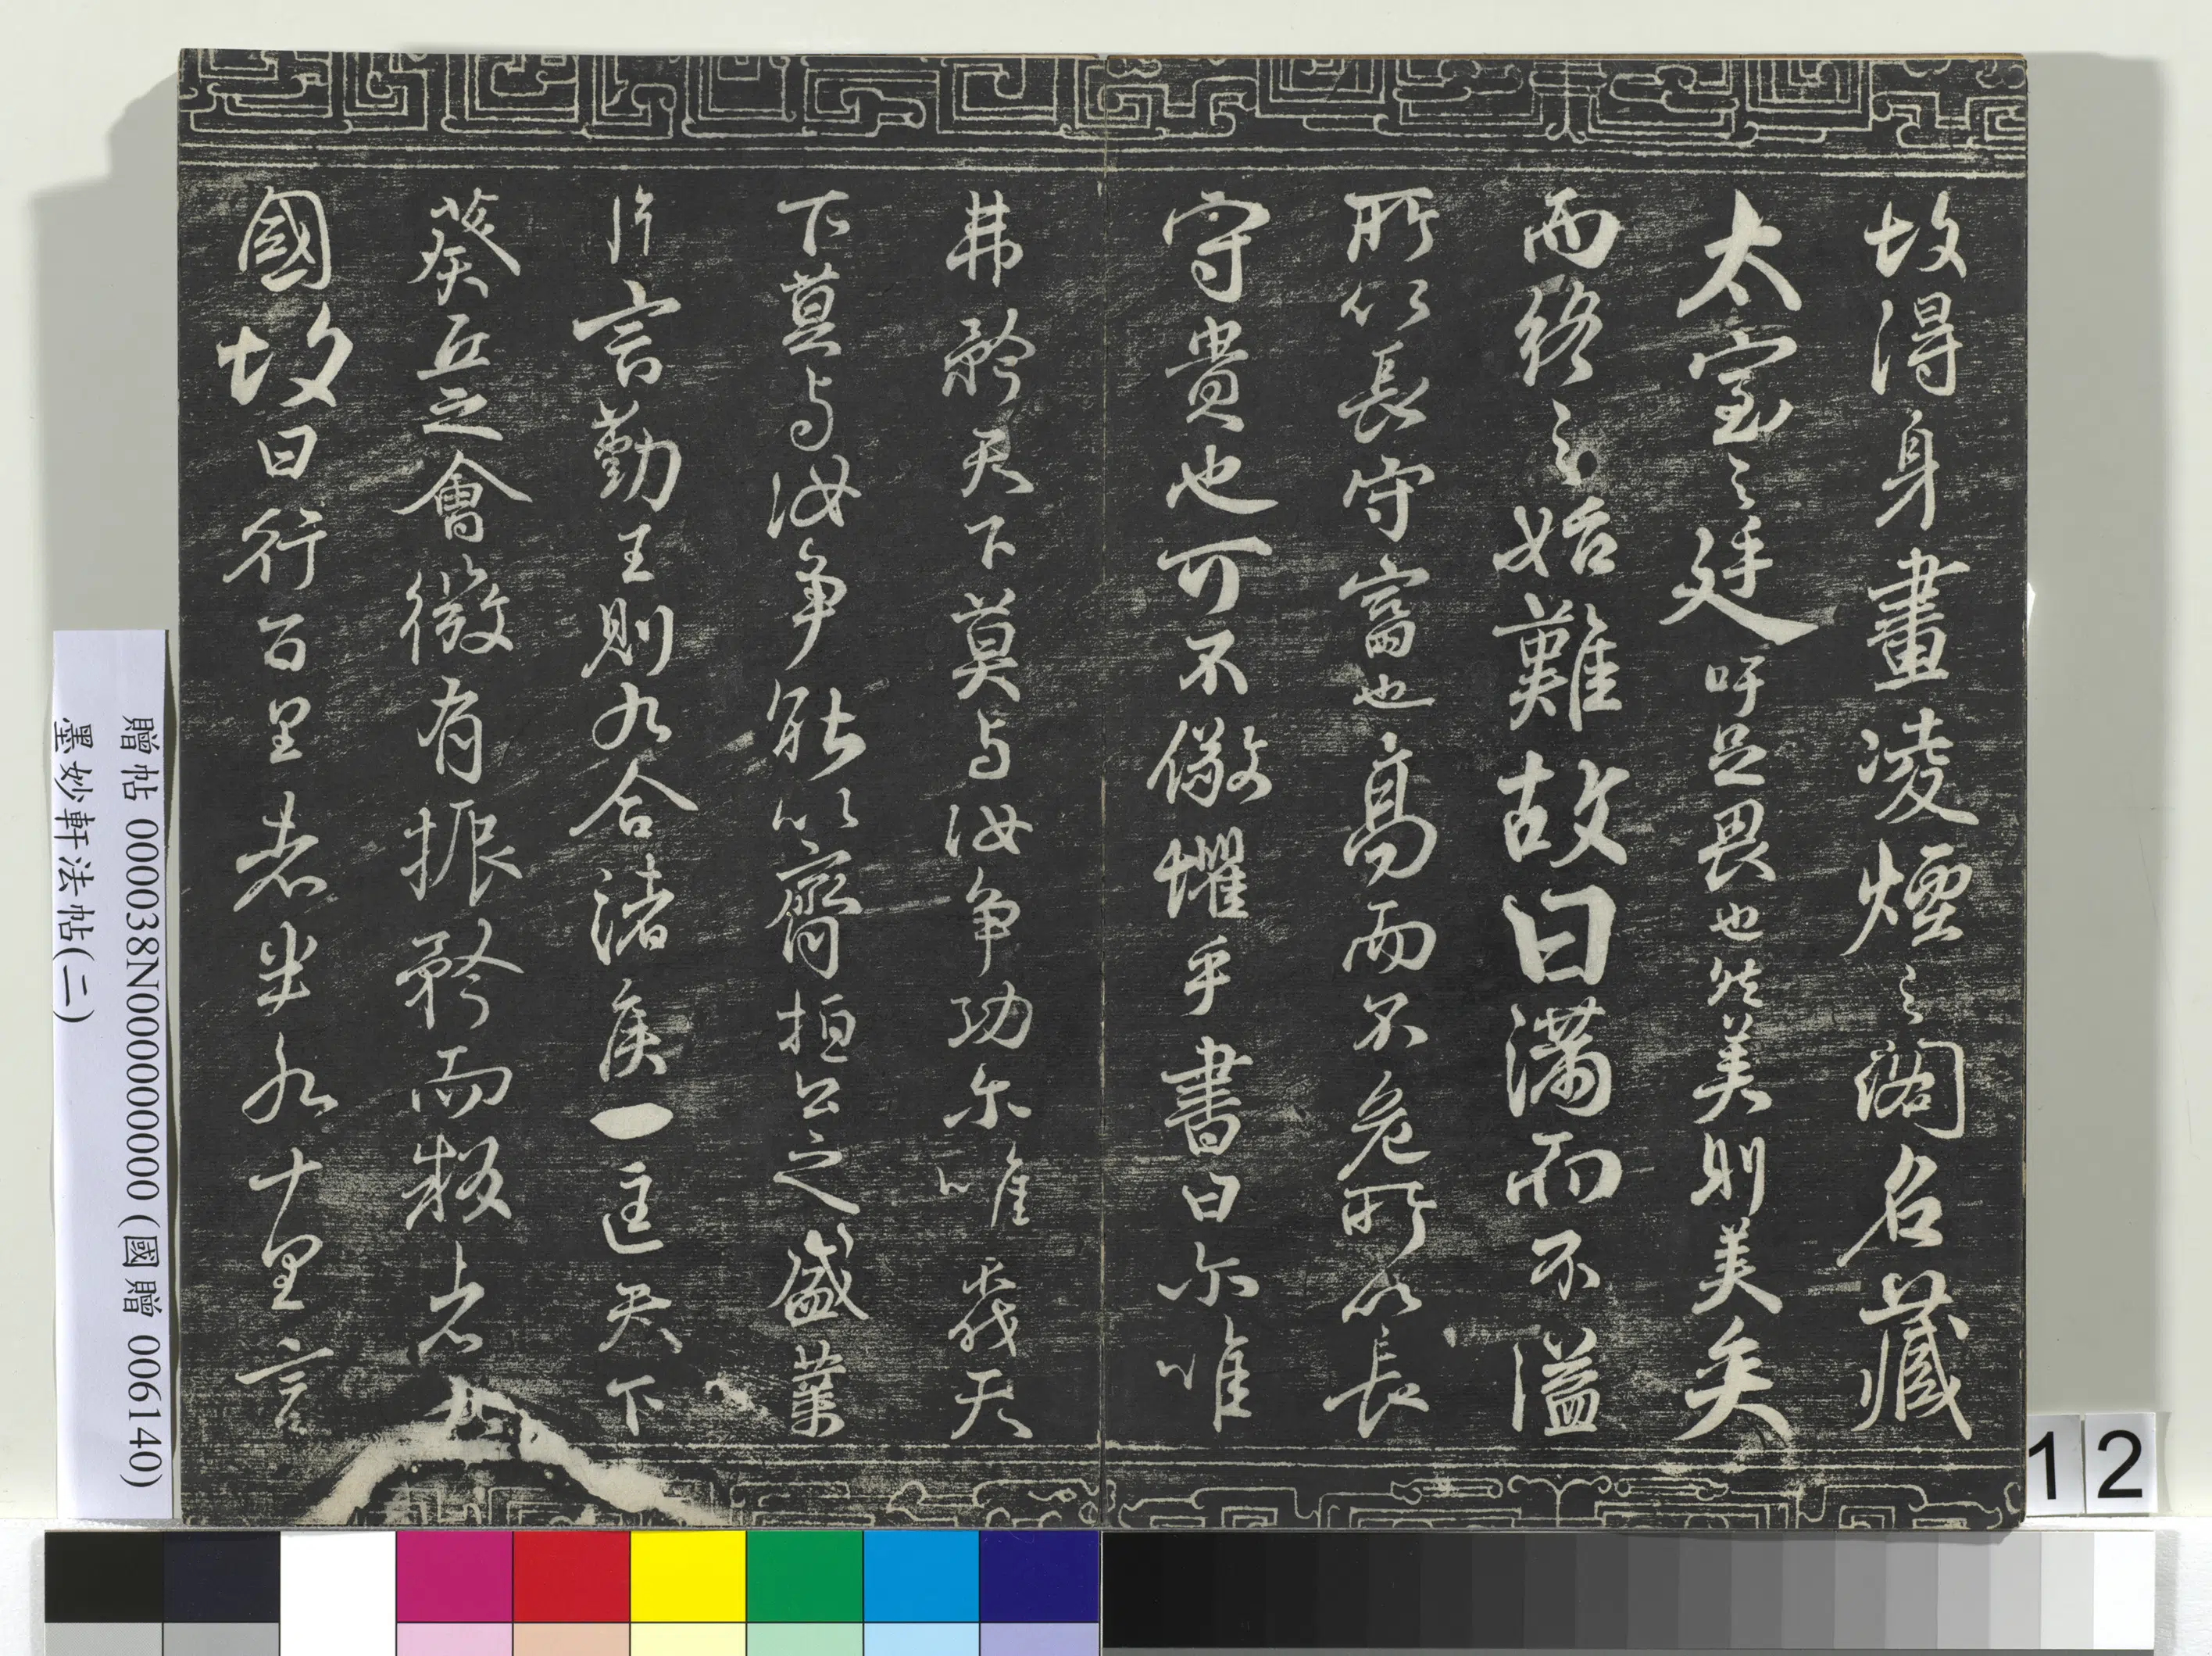 故得身畫凌煙之閣名藏
太室之廷吁足畏也然美則美矣
而終之始難故曰滿而不溢
所以長守富也高而不危所以長
守貴也可不儆懼乎書曰尔唯
弗矜天下莫与汝争功尔唯弗伐天
下莫与汝争能以齊桓公之盛業
片言勤王則九合諸侯一匡天下
葵丘之會微有振矜而叛者九
國故曰行百里者半九十里言
贈帖 000038N000000000 (國贈 006140)
墨妙軒法帖(二)
12